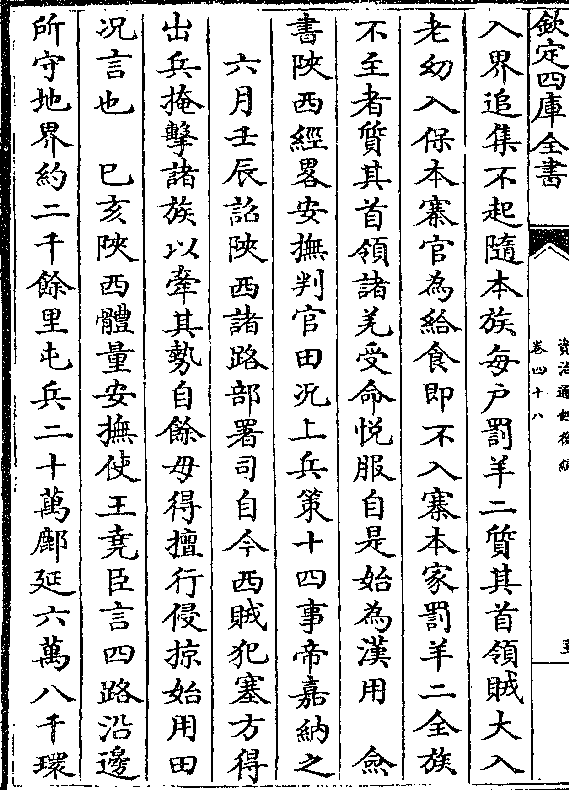 欽定四庫全書
資治通鑑後編
卷四十八
入界追集不起隨本族每户罰羊二質其首領賊大入
老幼入保本寨官為給食即不入寨本家罰羊二全族
不至者質其首領諸羌受命悦服自是始為漢用　僉
書陜西經畧安撫判官田况上兵策十四事帝嘉納之
六月壬辰詔陜西諸路部署司自今西賊犯塞方得
出兵掩擊諸族以牽其勢自餘毋得擅行侵掠始用田
况言也　已亥陜西體量安撫使王堯臣言四路沿邊
所守地界約二千餘里屯兵二十萬鄜延六萬八千環